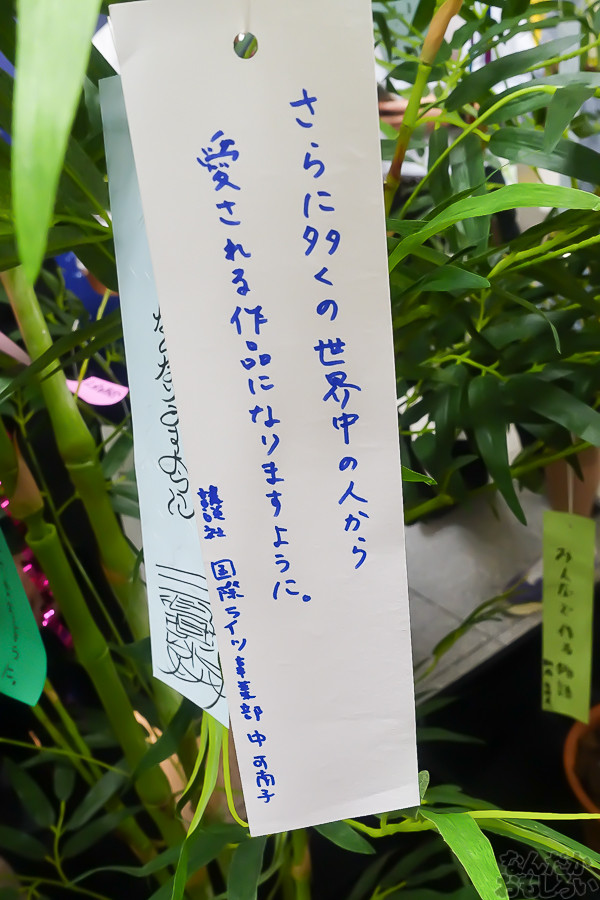 さらに多くの世界中の人から
愛される作品になりますように。
講談社 国際ライツ事業部 中可南子
みんなで作る物語
なんだか
おもしろい